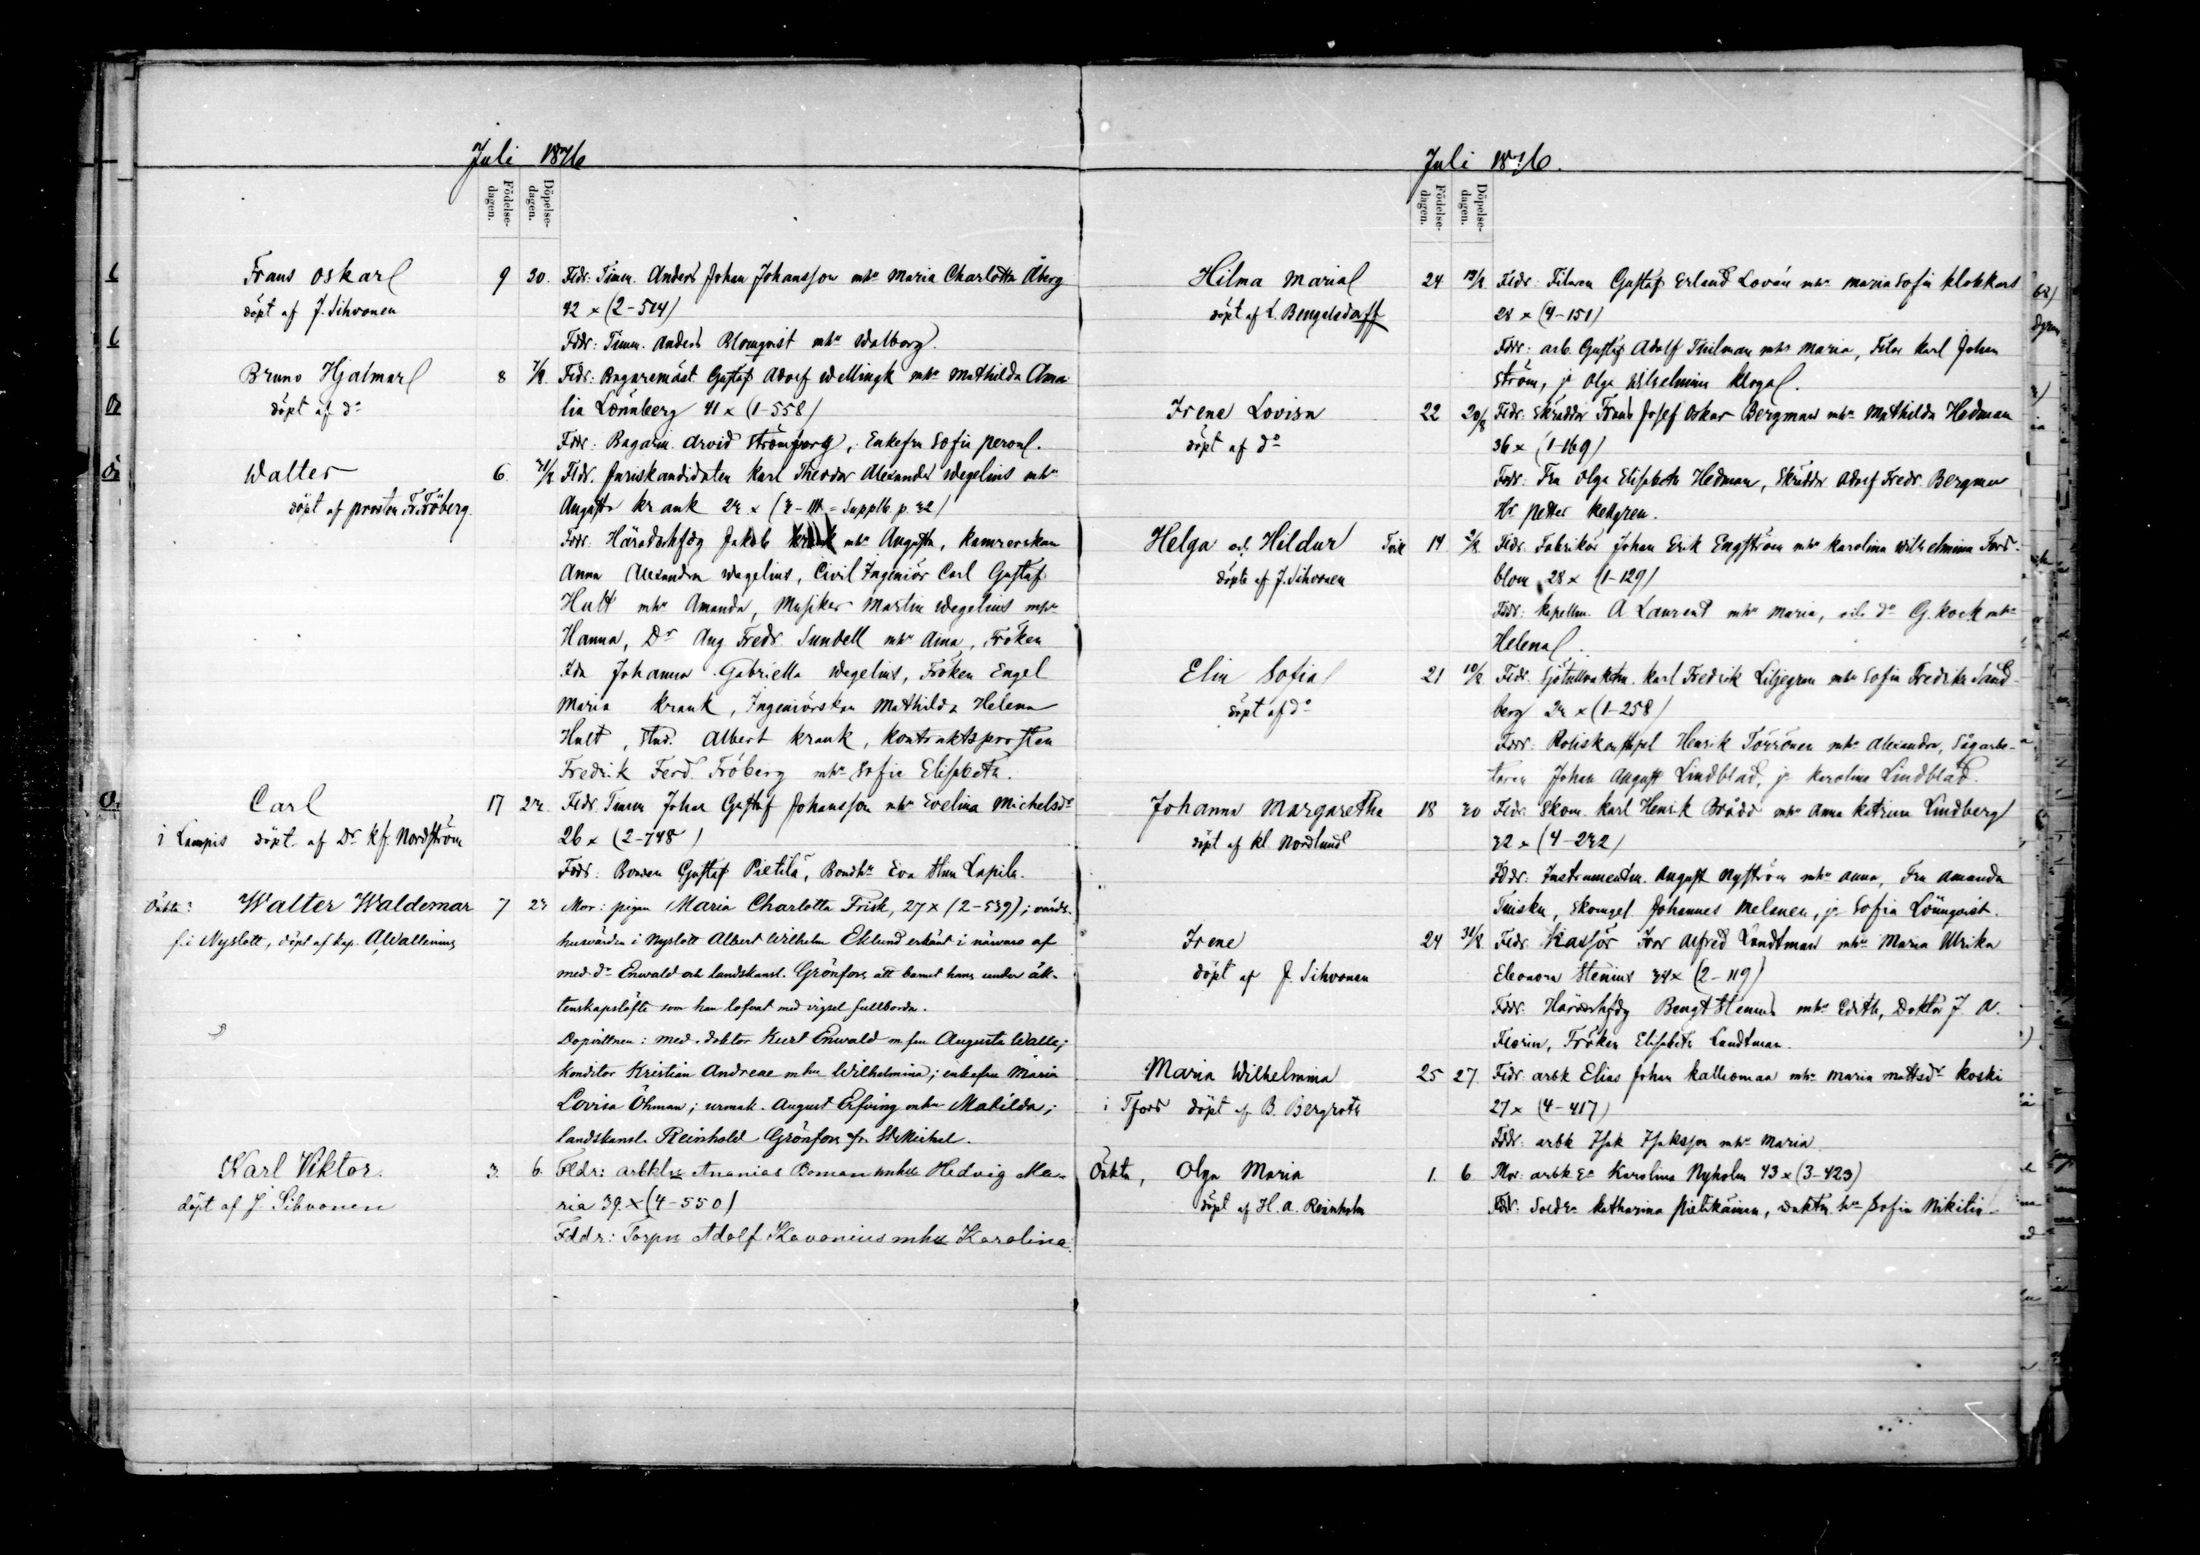 Juli 1876
Födelse-dagen.
Döpelse-dagen.
Frans Oskar 9 30. Fldr: Timm. Anders Johan Johansson mhu Maria Charlotta Åberg
döpt af J. Sihvonen 42 x (2-504)
Fddr: Timm. Anders Blomqvist mhu Walborg.
Bruno Hjalmar 8 Fldr: Bagaremäst Gustaf Adolf Wellingk mhu Mathilda Ama
döpt af do lia Lönnberg 41 x (1-558)
Fddr: Bagarm. Arvid Strömberg, Enkefru Sofia
Walter 6. Fldr. Juriskandidaten Karl Theodor Alexander Wegelius mhu
döpt af prosten F. Fröberg Augusta Krank
Fddr: Häradshfdg Jakob mhu Augusta, Kamrerskan
Anna Alexandra Wegelius, Civil Ingeniör Carl Gustaf
Hult mhu Amanda, Musiker Martin Wegelius mhu
Hanna, Dr Aug. Fredr. Sundell mhu Aina, Fröken
Ida Johanna Gabriella Wegelius, Fröken Engel
Maria Krank, Ingeniörskan Mathilda Helena
Hult, Stud. Albert Krank, Kontraktsprosten
Fredrik Ferd. Fröberg mhu Sofia Elisabeth.
Carl 17 Fldr. Timm Johan Gustaf Johansson mhu Evelina Michelsdr
i Lampis döpt af Dr K.f. Nordström 26 x (2-748)
Fddr: Bonden Gustaf Pietilä, Bondhu Eva Lapila.
Oäkta: Walter Waldemar 7 Mor: pigan Maria Charlotta Frisk, 27 x (2-539);
f. i Nyslott, döpt af kap. A Wallenius husvärden i Nyslott Albert Wilhelm Eklund erkänt i närvaro af
med. dr Enwald och landskansl. Grönfors att barnet hans under äk-
tenskapslöfte som han lofvat med vigsel fullborda.
Dopvittnen: med. doktor Kurt Enwald m fru Augusta Walle;
Konditor Kristian Andreae mhu Wilhelmina; enkefru Maria
Lovisa Öhman; urmak. August Erfving mhu Matilda;
landskansl. Reinhold Grönfors fr. St Michel.
Karl Viktor. 3. 6. Fldr: arbkl Ananias Boman mhu Hedvig Ma-
döpt af J. Sihvonen ria 39. x (4-550)
Fddr: Torpn Adolf Kavonius mhu Karolina.
Juli 1876.
Födelse-dagen.
Döpelse-dagen.
Hilma Maria 24 Fldr: Filaren Gustaf Erland Lovén mhu Maria Sofia Klokkars
döpt af L. Bengelsdorff 28 x (4-151)
Fddr: arb. Gustaf Adolf Thilman mhu Maria, Filar Karl Johan
Ström, j. Olga Wilhelmina
Irene Lovisa 22 20/8 Fldr: Skräddr Frans Josef Oskar Bergman mhu Mathilda Hedman
döpt af do 36 x (1-169)
Fddr: Fru Olga Elisabeth Hedman, Skräddr Adolf Fredr. Bergman
Hr Petter Kellgren.
Helga och Hildur Tvill 14 Fldr. Fabrikör Johan Erik Engström mhu Karolina Wilhelmina Fors-
döpta af J. Sihvonen blom 28 x (1-129)
Fddr: Kapellm. A Laurent mhu Maria, do G. Kock mhu
Helena
Elin Sofia 21 Fldr. Sjötullvaktm. Karl Fredrik Liljegren mhu Sofia Fredrika Sand-
döpt af do berg x (1-258)
Fddr: Poliskonstapel Henrik Törrönen mhu Alexandra, Sågarbe-
taren Johan August Lindblad, j. Karolina Lindblad.
Johanna Margaretha 18 30 Fldr. Skom. Karl Henrik Brådd mhu Anna Katrina Lindberg
döpt af kl. Nordlund 32 x (4-232)
Fddr: Instrumentm. August Nyström mhu Anna, Fru Amanda
Skomgel Johannes Melanen, j. Sofia Lönnqvist.
Irene 24 31/8 Fldr. Kassör Ivar Alfred Landtman mhu Maria Ulrika
döpt af J. Sihvonen Eleonora Stenius 34 x (2-119)
Fddr. Häradshfdg Bengt Stenius mhu Edith, Doktor J. A.
Florin, Fröken Elisabeth Landtman.
Maria Wilhelmina 25 27. Fldr. arbk Elias Johan Kalliomaa mhu Maria Mattsdr Koski
i Tfors döpt af B. Bergroth 27 x (4-417)
Fddr: arbk Isak Isaksson mhu Maria
Oäkta, Olga Maria 1. 6. Mor: arbk Karolina Nyholm 43 x (3-423)
döpt af H. A. Reinholm Fddr: Katharina Pietikäinen, Sofia Nikitin